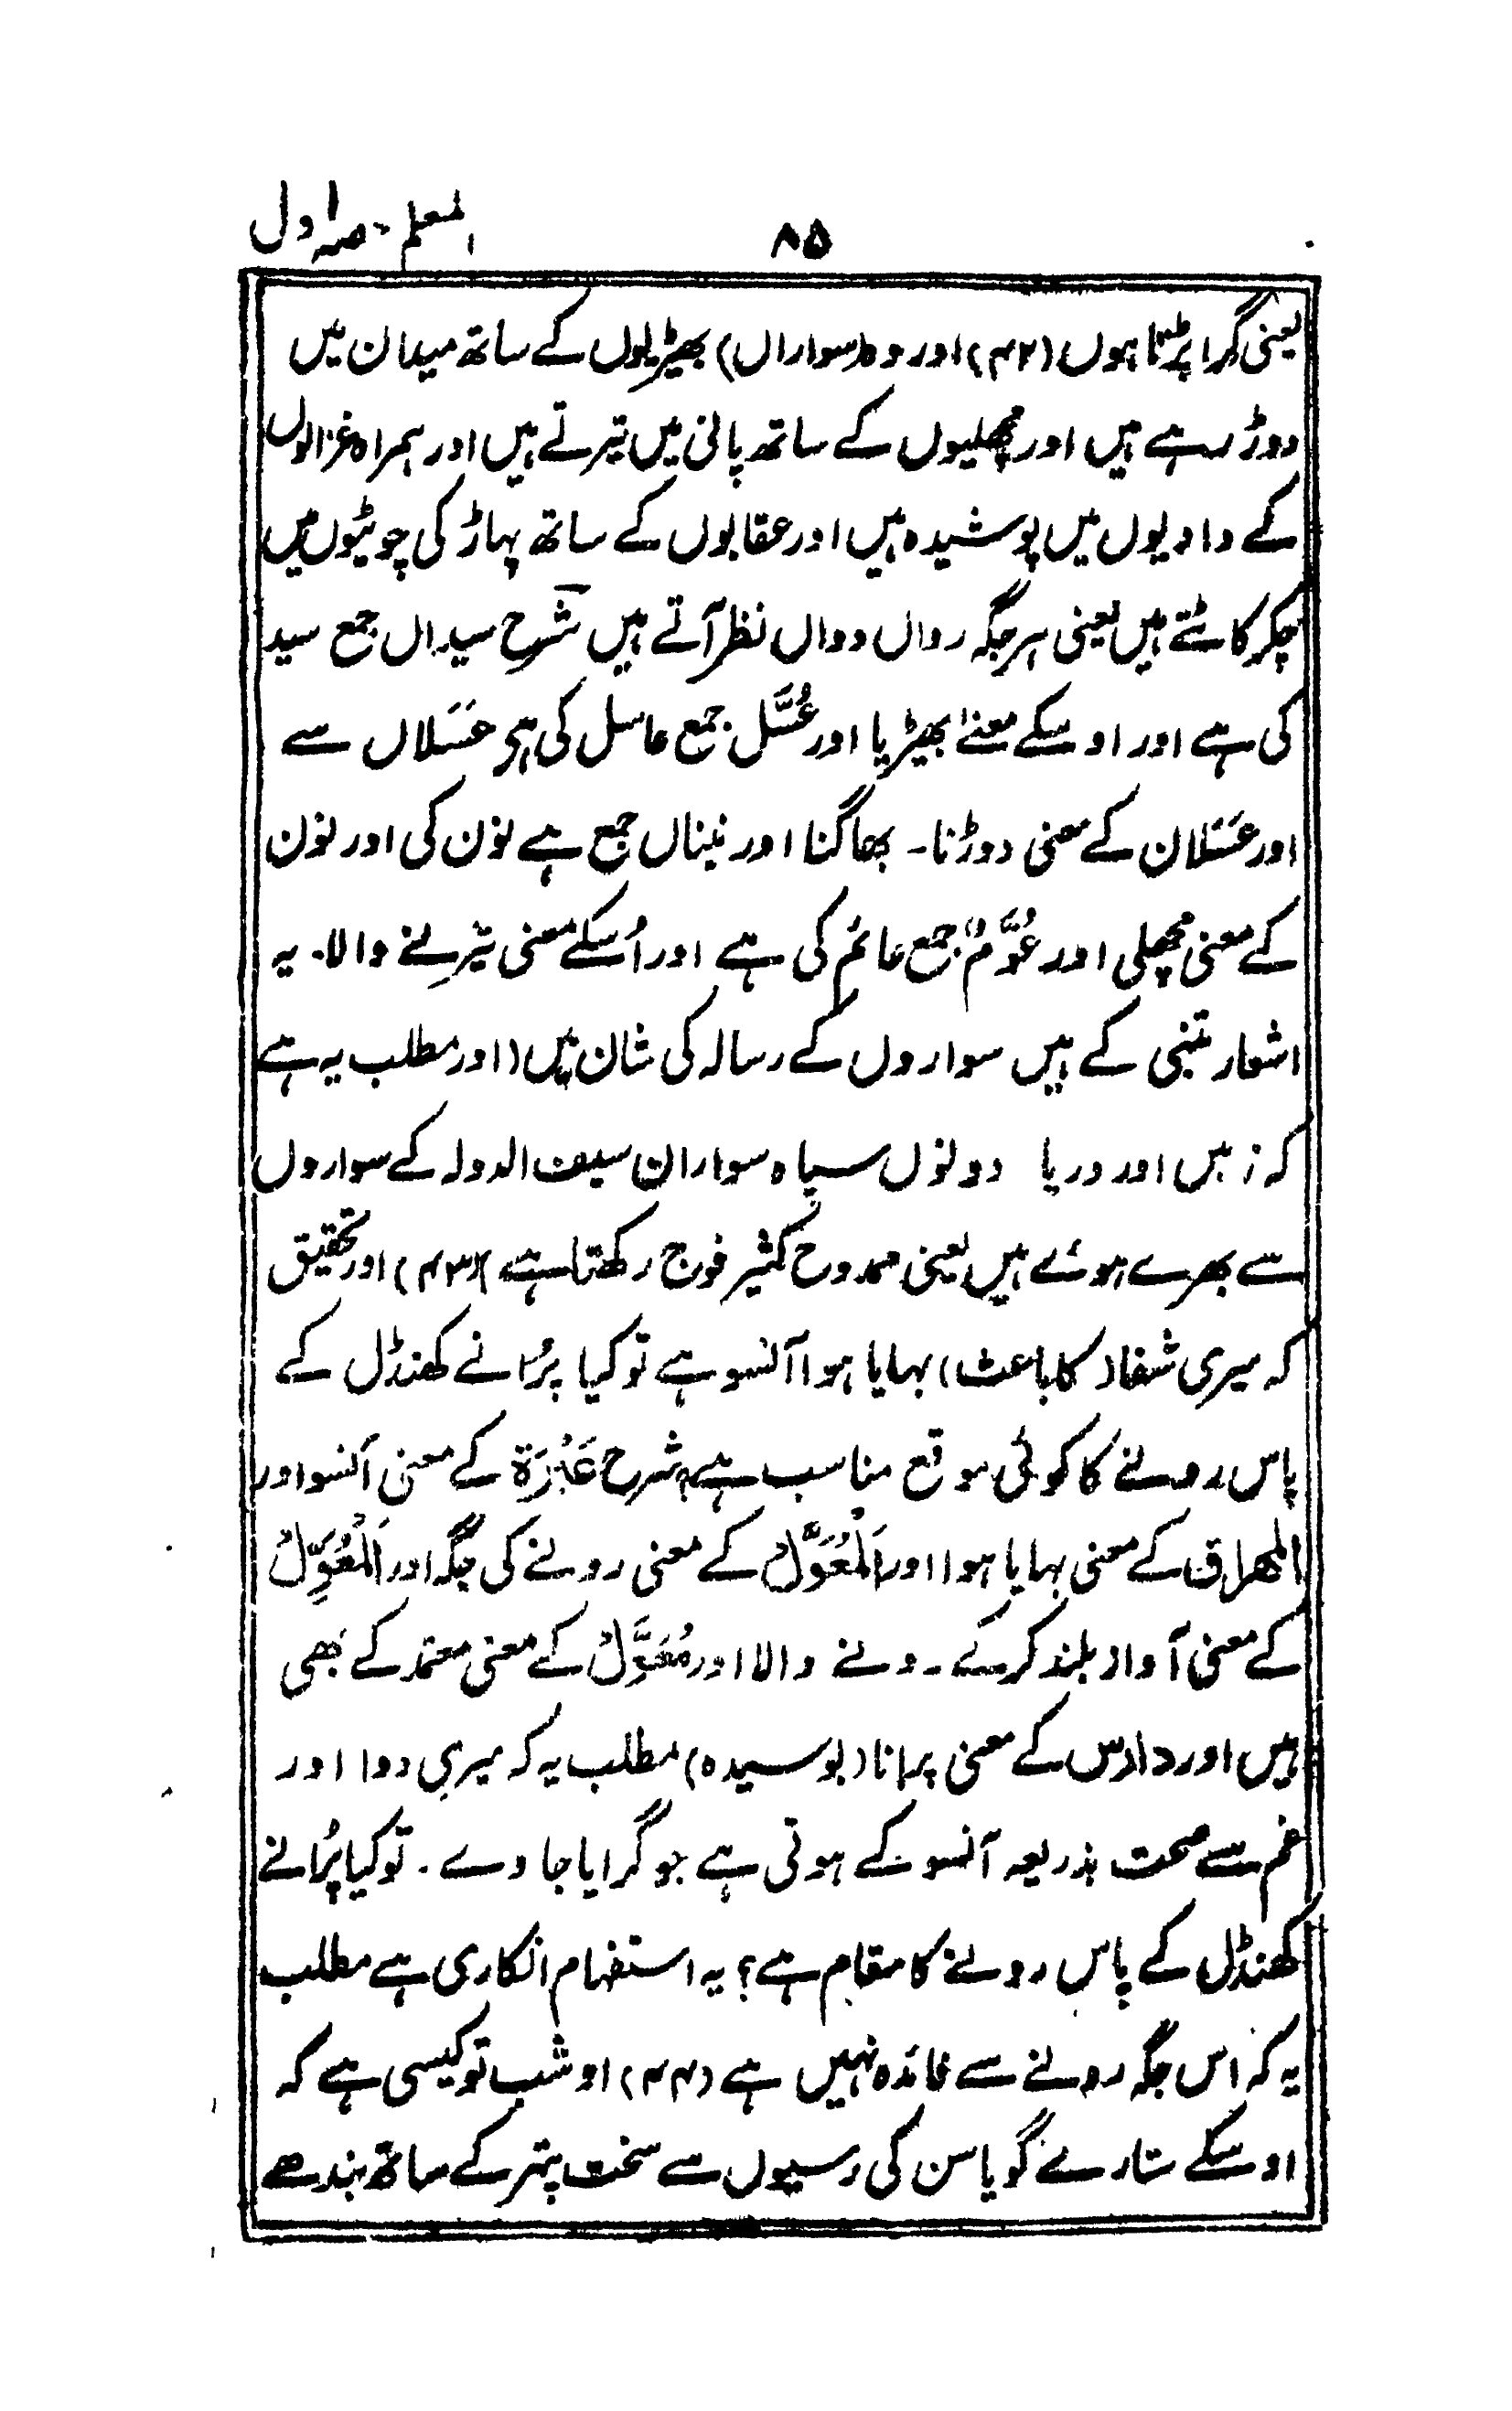 المعلم - حصہ اول
۸۵
یعنی گرا پڑتا ہوں (۴۲) اور وہ (سواراں) بھیڑیوں کے ساتھ میدان میں
دوڑ رہے ہیں اور مچھلیوں کے ساتھ پانی میں تیرتے ہیں اور ہمراہ غزالوں
کے وادیوں میں پوشیدہ ہیں اور عقابوں کے ساتھ پہاڑ کی چوٹیوں میں
چکر کاٹتے ہیں یعنی ہر جگہ رواں دواں نظر آتے ہیں شرح سیداں جمع سید
کی ہے اور اوسکے معنے بھیڑیا اور عُسَّل جمع عاسل کی ہی عَسَلاں سے
اور عَسَلان کے معنی دوڑنا - بھاگنا اور نیناں جمع ہے نون کی اور نون
کے معنی مچھلی اور عُوَّمٌ جمع عائم کی ہے اور اُسکے معنی تیرنے والا. یہ
اشعار متنبی کے ہیں سواروں کے رسالہ کی شان میں (اور مطلب یہ ہے
کہ زمیں اور دریا دونوں سپاہ سواران سیف الدولہ کے سواروں
سے بھرے ہوئے ہیں یعنی ممدوح کثیر فوج رکھتا ہے) (۴۳) اور تحقیق
کہ میری شفا (کا باعث) بہایا ہوا آنسو ہے تو کیا پرُانے کھنڈل کے
پاس رونے کا کوئی موقع مناسب ہے شرح عَبْرَة کے معنی آنسو اور
المهراق کے معنی بہایا ہوا اور اَلْمُعَوَّلُ کے معنی رونے کی جگہ اور اَلْمُعَوِّلُ
کے معنی آواز بلند کرکے رونے والا اور مُعَوَّلُ کے معنی معتمد کے بھی
ہیں اور دارس کے معنی پرانا (بوسیدہ) مطلب یہ کہ میری دوا اور
غم سے صحت بذریعہ آنسو کے ہوتی ہے جو گرایا جاوے . تو کیا پُرانے
کھنڈل کے پاس رونے کا مقام ہے؟ یہ استفہام انکاری ہے مطلب
یہ کہ اس جگہ رونے سے فائدہ نہیں ہے (۴۴) او شب تو کیسی ہے کہ
اوسکے ستارے گویا سن کی رسیوں سے سخت پتھر کے ساتھ بندھے